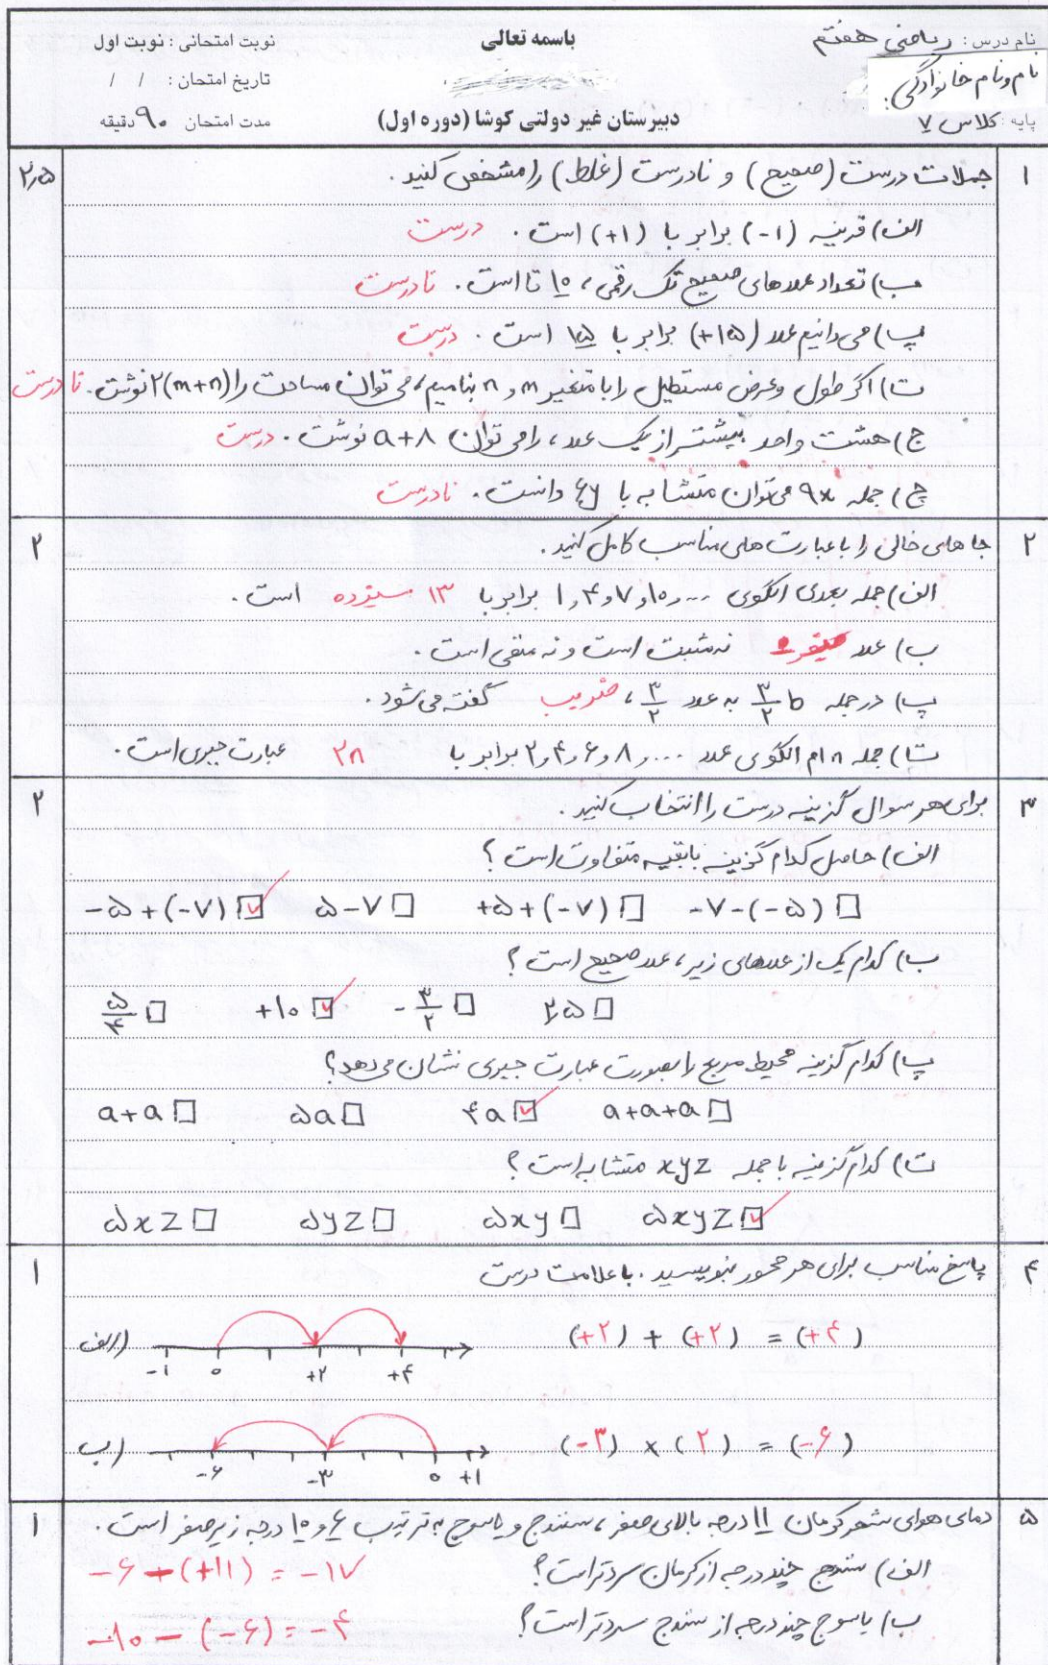 نام درس: ریاضی هفتم
باسمه تعالی
نوبت امتحانی: نوبت اول
نام و نام خانوادگی:
تاریخ امتحان: / /
پایه: کلاس ۷
دبیرستان غیر دولتی کوشا (دوره اول)
مدت امتحان ۹۰ دقیقه
۱ جملات درست (صحیح) و نادرست (غلط) را مشخص کنید. ۲٫۵
الف) قرینه (-۱) برابر با (+۱) است. درست
ب) تعداد عددهای صحیح تک رقمی، ۱۰ تا است. نادرست
پ) می دانیم عدد (+۱۵) برابر با ۱۵ است. درست
ت) اگر طول و عرض مستطیل را با متغیر m و n بنامیم، می توان مساحت را ۲(m+n) نوشت. نادرست
ج) هشت واحد بیشتر از یک عدد، را می توان a+۸ نوشت. درست
چ) جمله ۹x می توان متشابه با ۶y دانست. نادرست
۲ جا های خالی را با عبارت های مناسب کامل کنید. ۲
الف) جمله بعدی الگوی ۱,۴,۷,۱۰,... برابر با ۱۳ سیزده است.
ب) عدد صفر ۰ نه مثبت است و نه منفی است.
پ) در جمله ۳/۲ b به عدد ۳/۲، ضریب گفته می شود.
ت) جمله n ام الگوی عدد ۲,۴,۶,۸,... برابر با ۲n عبارت جبری است.
۳ برای هر سوال گزینه درست را انتخاب کنید. ۲
الف) حاصل کدام گزینه با بقیه متفاوت است؟
□ -۷-(-۵) □ +۵+(-۷) □ ۵-۷ ☑ -۵+(-۷)
ب) کدام یک از عددهای زیر، عدد صحیح است؟
□ ۲٫۵ □ -۳/۲ ☑ +۱۰ □ ۵/۴
پ) کدام گزینه محیط مربع را بصورت عبارت جبری نشان می دهد؟
□ a+a+a ☑ ۴a □ ۵a □ a+a
ت) کدام گزینه با جمله xyz متشابه است؟
☑ ۵xyz □ ۵xy □ ۵yz □ ۵xz
۴ پاسخ مناسب برای هر محور بنویسید. با علامت درست ۱
(+۲) + (+۲) = (+۴)
الف)
-۱ ۰ +۲ +۴
(-۳) × (۲) = (-۶)
ب)
-۶ -۳ ۰ +۱
۵ دمای هوای شهر کرمان ۱۱ درجه بالای صفر، سنندج و یاسوج به ترتیب ۶ و ۱۰ درجه زیر صفر است. ۱
الف) سنندج چند درجه از کرمان سردتر است؟ -۶-(+۱۱) = -۱۷
ب) یاسوج چند درجه از سنندج سردتر است؟ -۱۰-(-۶) = -۴